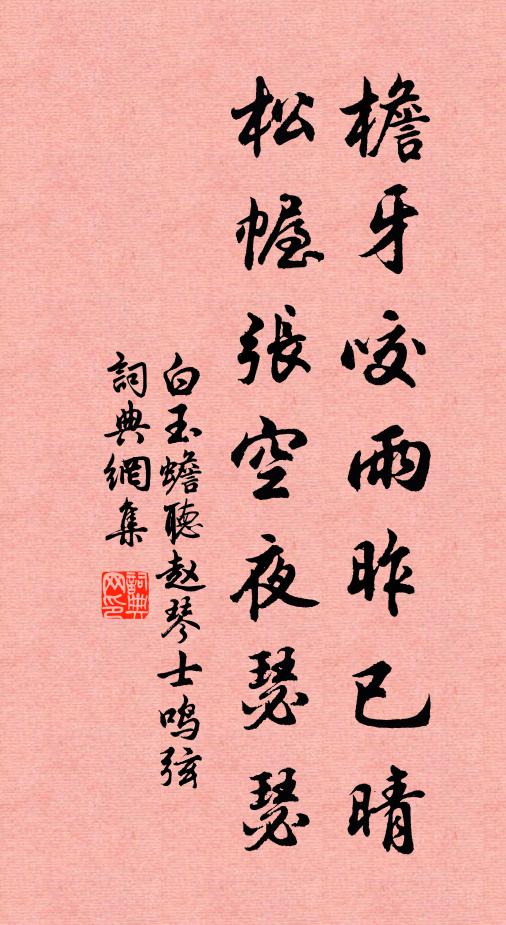 檐牙咬雨昨已晴
松幄張空夜瑟瑟
白玉蟾聽赵琴士鸣弦
詞典網集
詞典网印